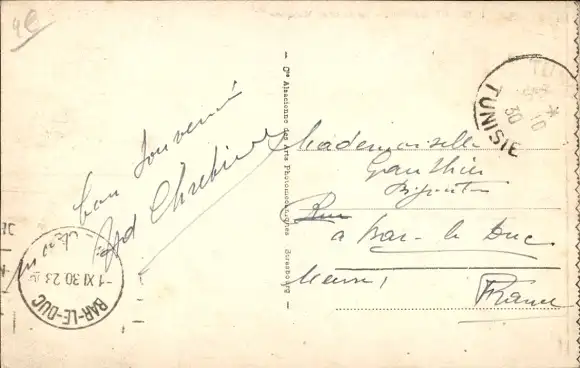 4€
mon bon souvenir
Chrétien
Cie Alsacienne des Arts Photomécaniques - Strasbourg
TUNISIE
30
* 10
Mademoiselle
Gauthier
Rue
à Bar-le-Duc
Meuse,
France
BAR-LE-DUC
-1 XI 30 23